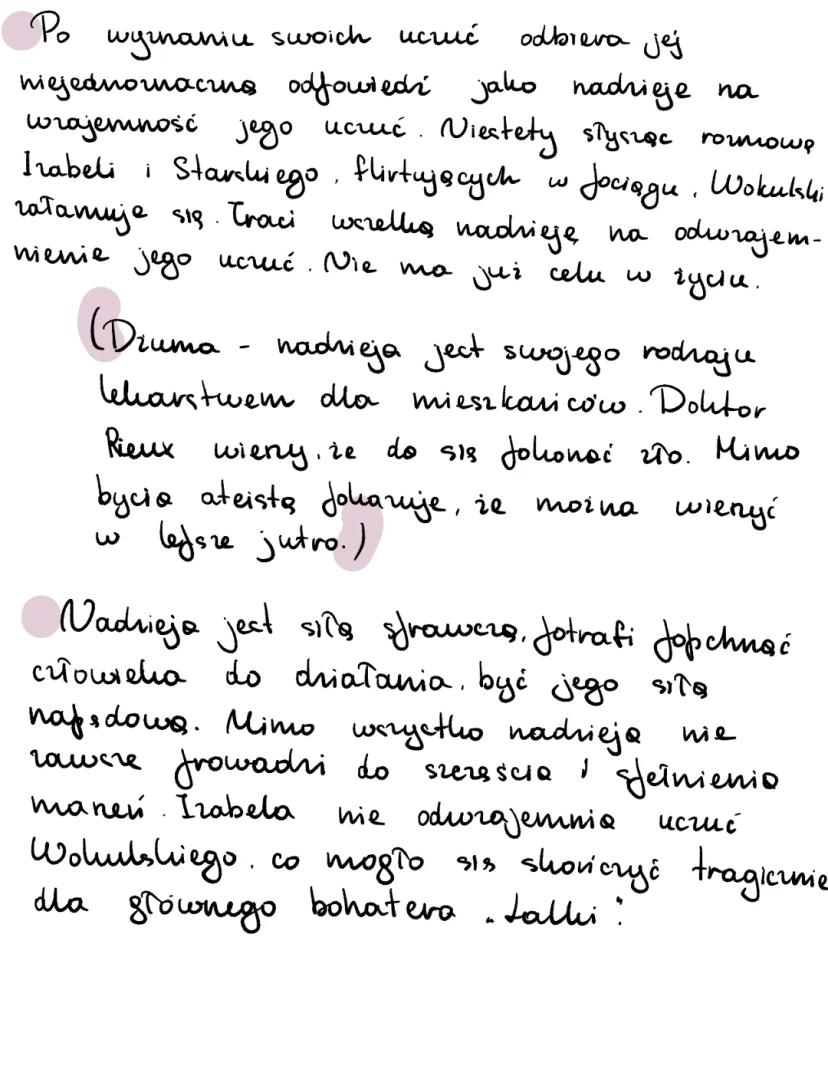 Po wyznaniu swoich uczuć odbiera jej
niejednoznaczną odpowiedź jako nadzieję na
wzajemność jego uczuć. Niestety słysząc rozmowę
Izabeli i Starskiego, flirtujących w pociągu, Wokulski
załamuje się. Traci wszelką nadzieję na odwzajem-
nienie jego uczuć. Nie ma już celu w życiu.
(Dżuma - nadzieja jest swojego rodzaju
lekarstwem dla mieszkańców. Doktor
Rieux wierzy, że da się pokonać zło. Mimo
bycia ateistą pokazuje, że można wierzyć
w lepsze jutro.)
Nadzieja jest siłą sprawczą, potrafi popchnąć
człowieka do działania, być jego siłą
napędową. Mimo wszystko nadzieja nie
zawsze prowadzi do szczęścia i spełnienia
marzeń. Izabela nie odwzajemnia uczuć
Wokulskiego, co mogło się skończyć tragicznie
dla głównego bohatera "Lalki".